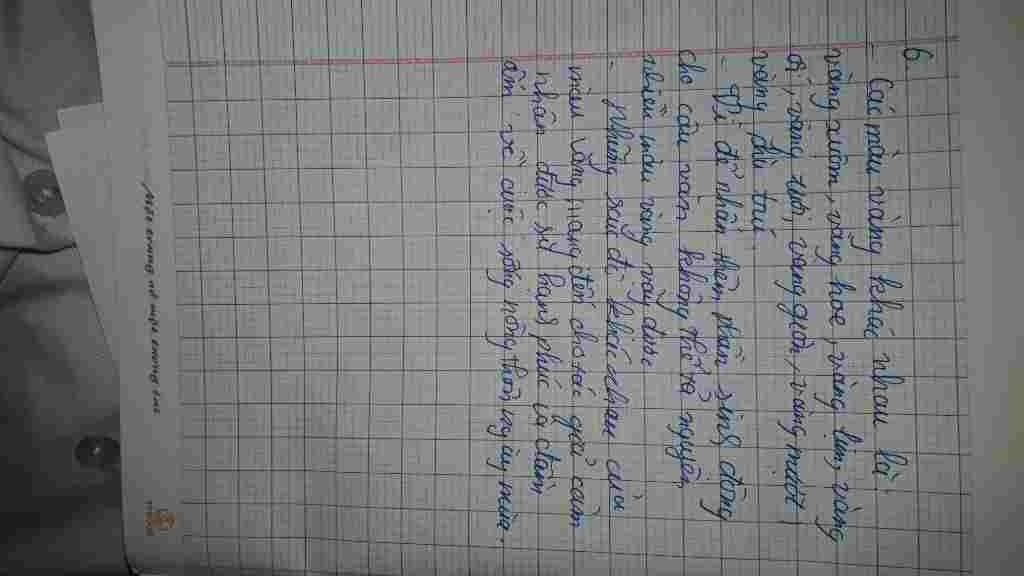 6
- Các màu vàng khác nhau là:
vàng xuộm, vàng hoe, vàng lịm, vàng
ối, vàng tươi, vàng giòn, vàng mượt,
vàng đầu tươi
- Để nhân thêm phần sinh động
cho câu văn không thể tả nguyên
nhiều màu vàng vậy được
- Những sự khác nhau của
màu vàng mang đến cho tác giả cảm
nhận được sự hạnh phúc và đầm
ấm về cuộc sống nông thôn ngày mùa.